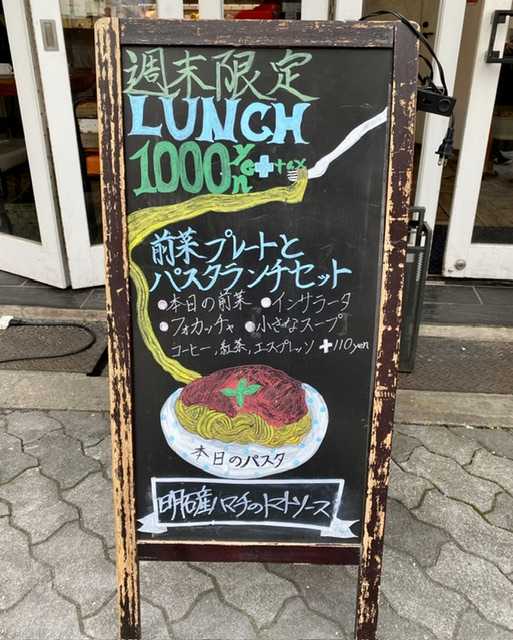 週末限定
LUNCH
1000yen+tax
前菜プレートと
パスタランチセット
●本日の前菜 ●インサラータ
●フォカッチャ ●小さなスープ
コーヒー,紅茶,エスプレッソ +110yen
本日のパスタ
明石産ハマチのトマトソース